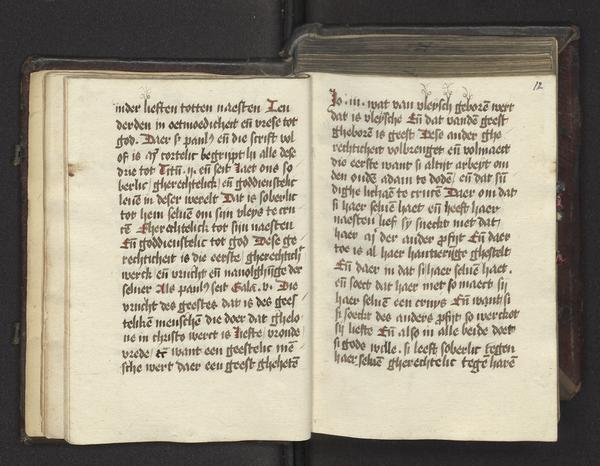 inder lieften totten naesten Ten
derden in oetmoedicheit en̄ vrese tot
god. Daer sṫ paulꝯ en̄ die scrift vol
of is cortelic begrypt In alle dese
drie tot Titū. ij. en̄ seit Laet ons so
berlic / gherechtelick / en̄ goddienstelic
leuē in deser werelt Dat is soberlic
tot hem seluē om sijn vleys te cru
cē Gherechtelick tot sijn naesten
En̄ goddienstelic tot god Dese ge
rechticheit is die eerste gherechtich
werck en̄ vrucht en̄ nauolghīge der
seluer Als paulꝯ seit Gala. v. Die
vrucht des geestes dat is des gees
telikē menschē die doer dat ghelo
ue in christo werct is liefte / vroude /
vrede / want een geestelic mē
sche wert daer een geest ghehetē
12
Jo. iij. wat van vleysch geborē wert
dat is vleysche En̄ dat vandē geest
gheborē is geest Dese ander ghe
rechticheit volbrenget en̄ volmaect
die eerste want si altijt arbeyt om
den oudē adam to dodē / en̄ dat sū
dighe lichaē te crucē Daer om dat
si haer seluē haet en̄ heeft haer
naesten lief sy sueckt niet dat
haer der ander ꝓfijt En̄ daer
toe is al haer hantieringe ghestelt
En̄ daer in dat si haer seluē haet.
en̄ soect dat haer niet so maect sij
haer seluē een cruys En̄ want si
si soeckt des anders ꝓfijt so wercket
sij liefte En̄ also in alle beide doet
si gods wille. si leeft soberlic tegen
haer seluē gherechtelic tegē harē